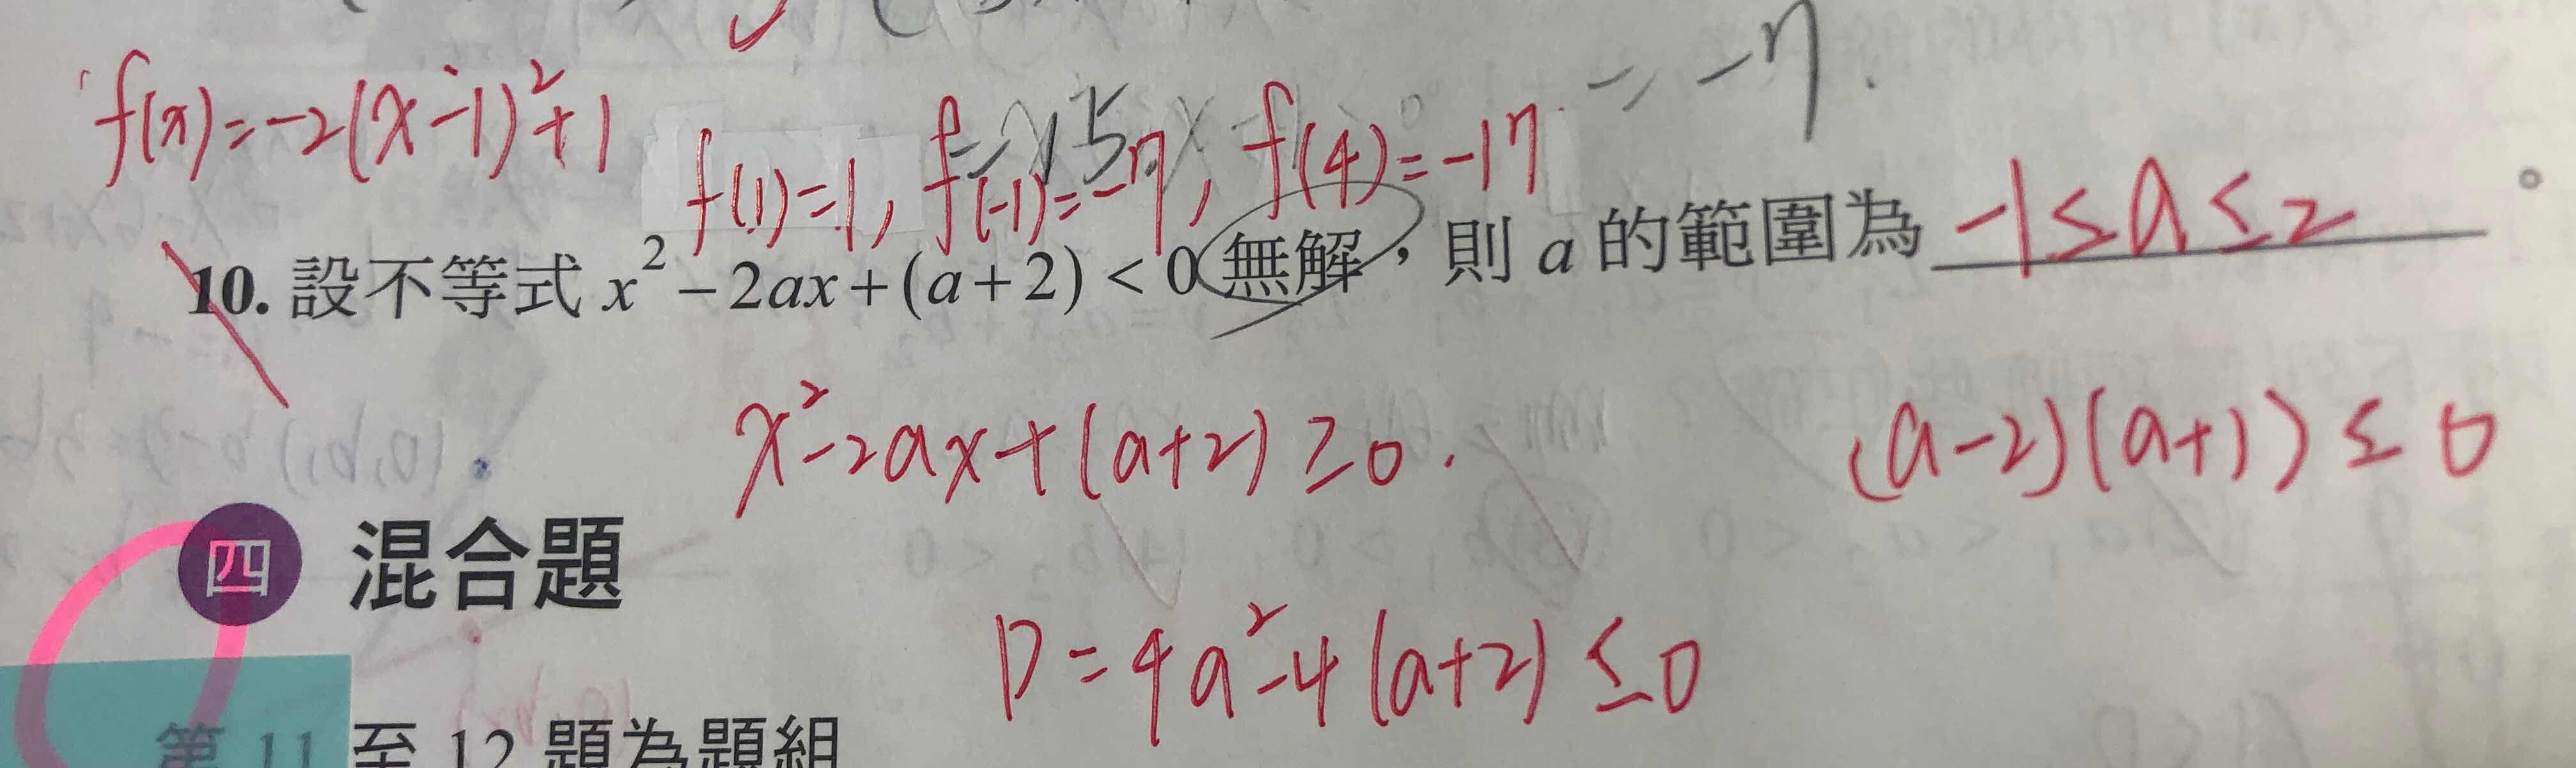 f(x)=-2(x-1)²+1
= -7.
f(1)=1, f(-1)=-7, f(4)=-17
10. 設不等式 x² - 2ax + (a + 2) < 0 無解,則 a 的範圍為 -1 ≤ a ≤ 2 。
x²-2ax+(a+2) ≥0.
(a-2)(a+1) ≤ 0
四 混合題
D = 4a²-4(a+2) ≤0
第 11 至 12 題為題組